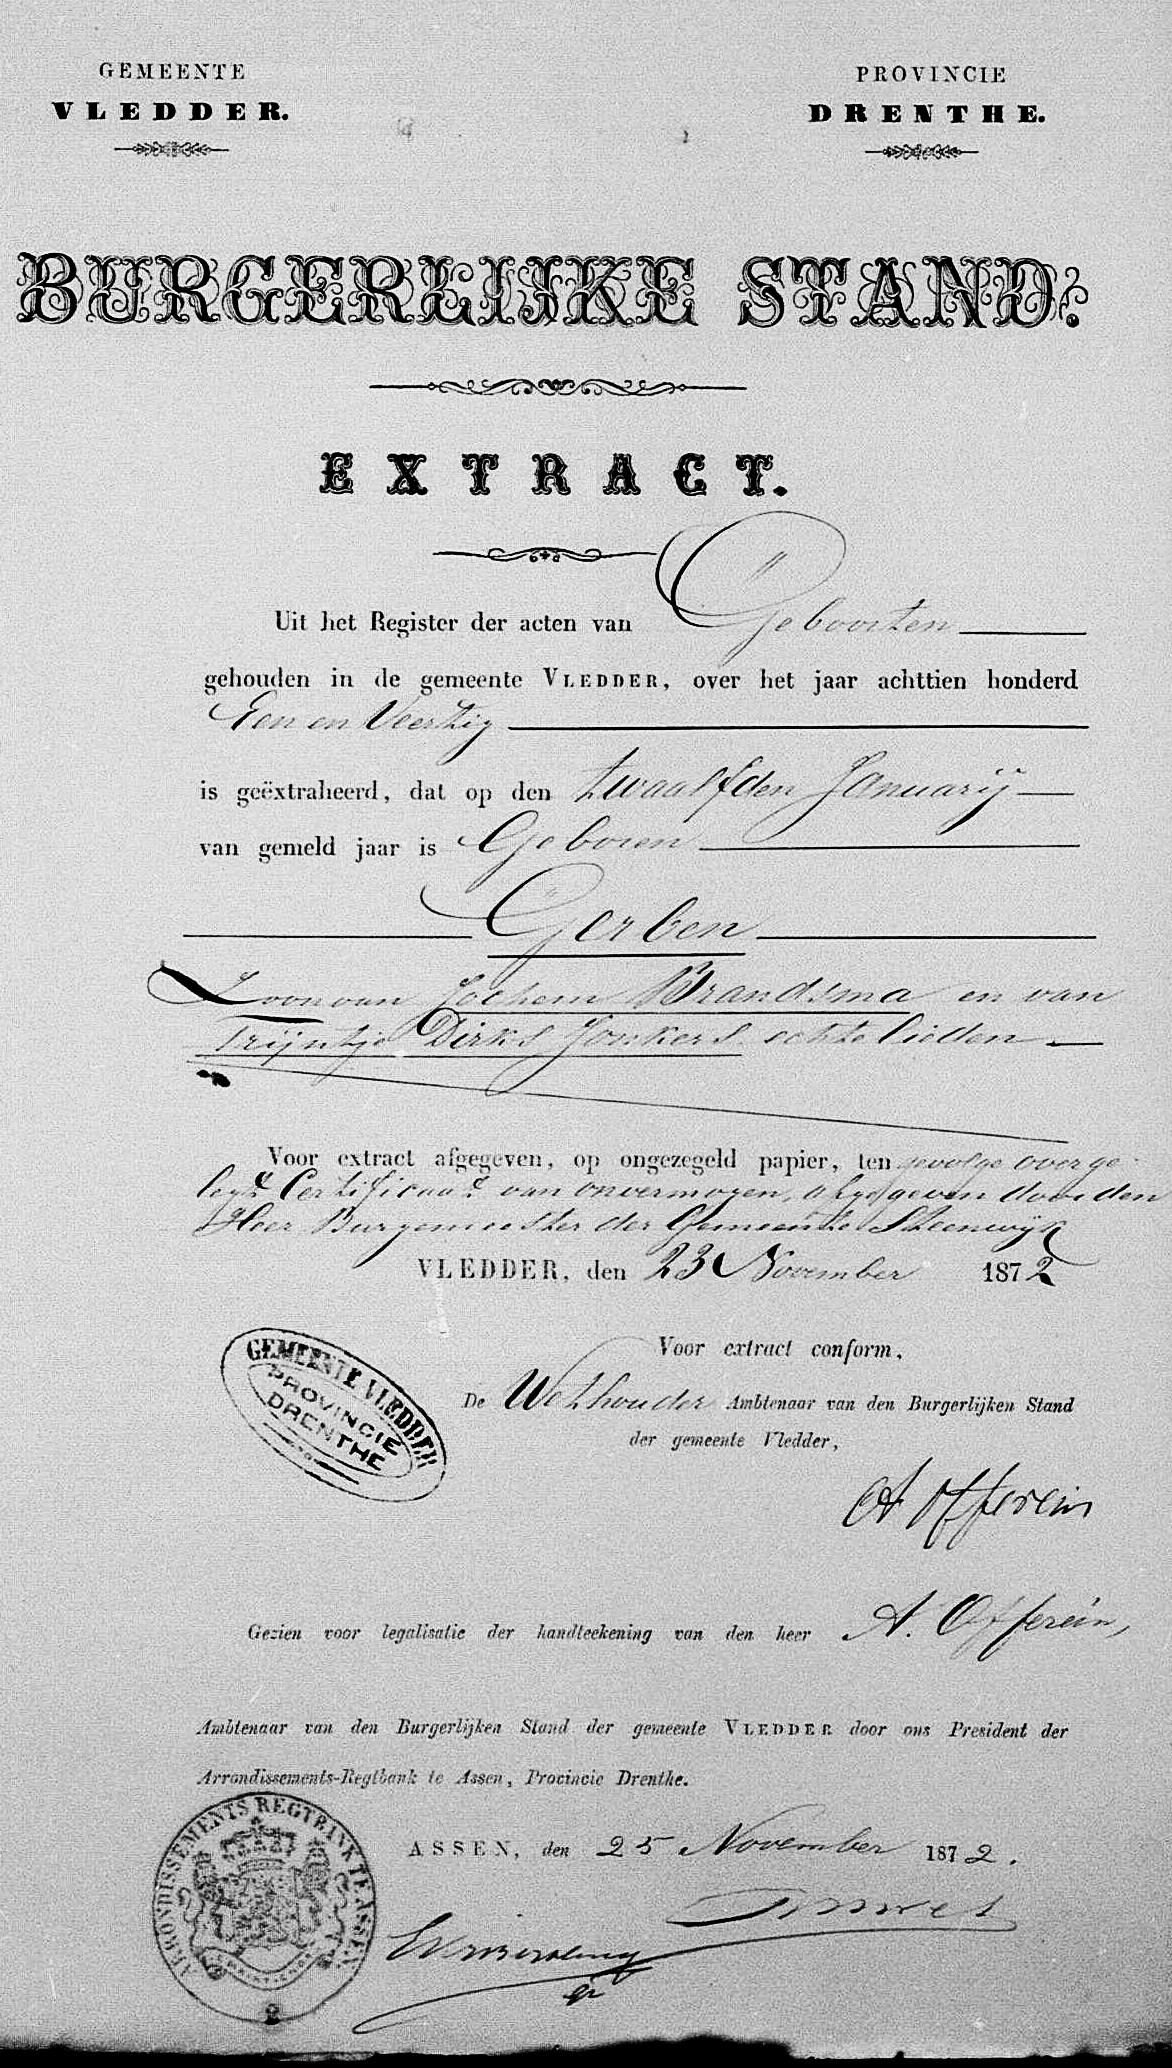 GEMEENTE
VLEDDER.
PROVINCIE
DRENTHE.
BURGERLIJKE STAND.
EXTRACT.
Uit het Register der acten van Geboorten
gehouden in de gemeente VLEDDER, over het jaar achttien honderd
Een en Veertig
is geëxtraheerd, dat op den twaalfden Januarij
van gemeld jaar is Geboren
Gerben
Zoon van Jochem Brandsma en van
Trijntje Dirks Jonkers echtelieden
Voor extract afgegeven, op ongezegeld papier, ten gevolge overge-
legd Certificaat van onvermogen, afgegeven door den
Heer Burgemeester der Gemeente Steenwijk
VLEDDER, den 23 November 1872
GEMEENTE VLEDDER
PROVINCIE
DRENTHE
Voor extract conform,
De Wethouder Ambtenaar van den Burgerlijken Stand
der gemeente Vledder,
A Offerein
Gezien voor legalisatie der handteekening van den heer A. Offerein,
Ambtenaar van den Burgerlijken Stand der gemeente VLEDDER door ons President der
Arrondissements-Regtbank te Assen, Provincie Drenthe.
ARRONDISSEMENTS REGTBANK TE ASSEN
ASSEN, den 25 November 1872.